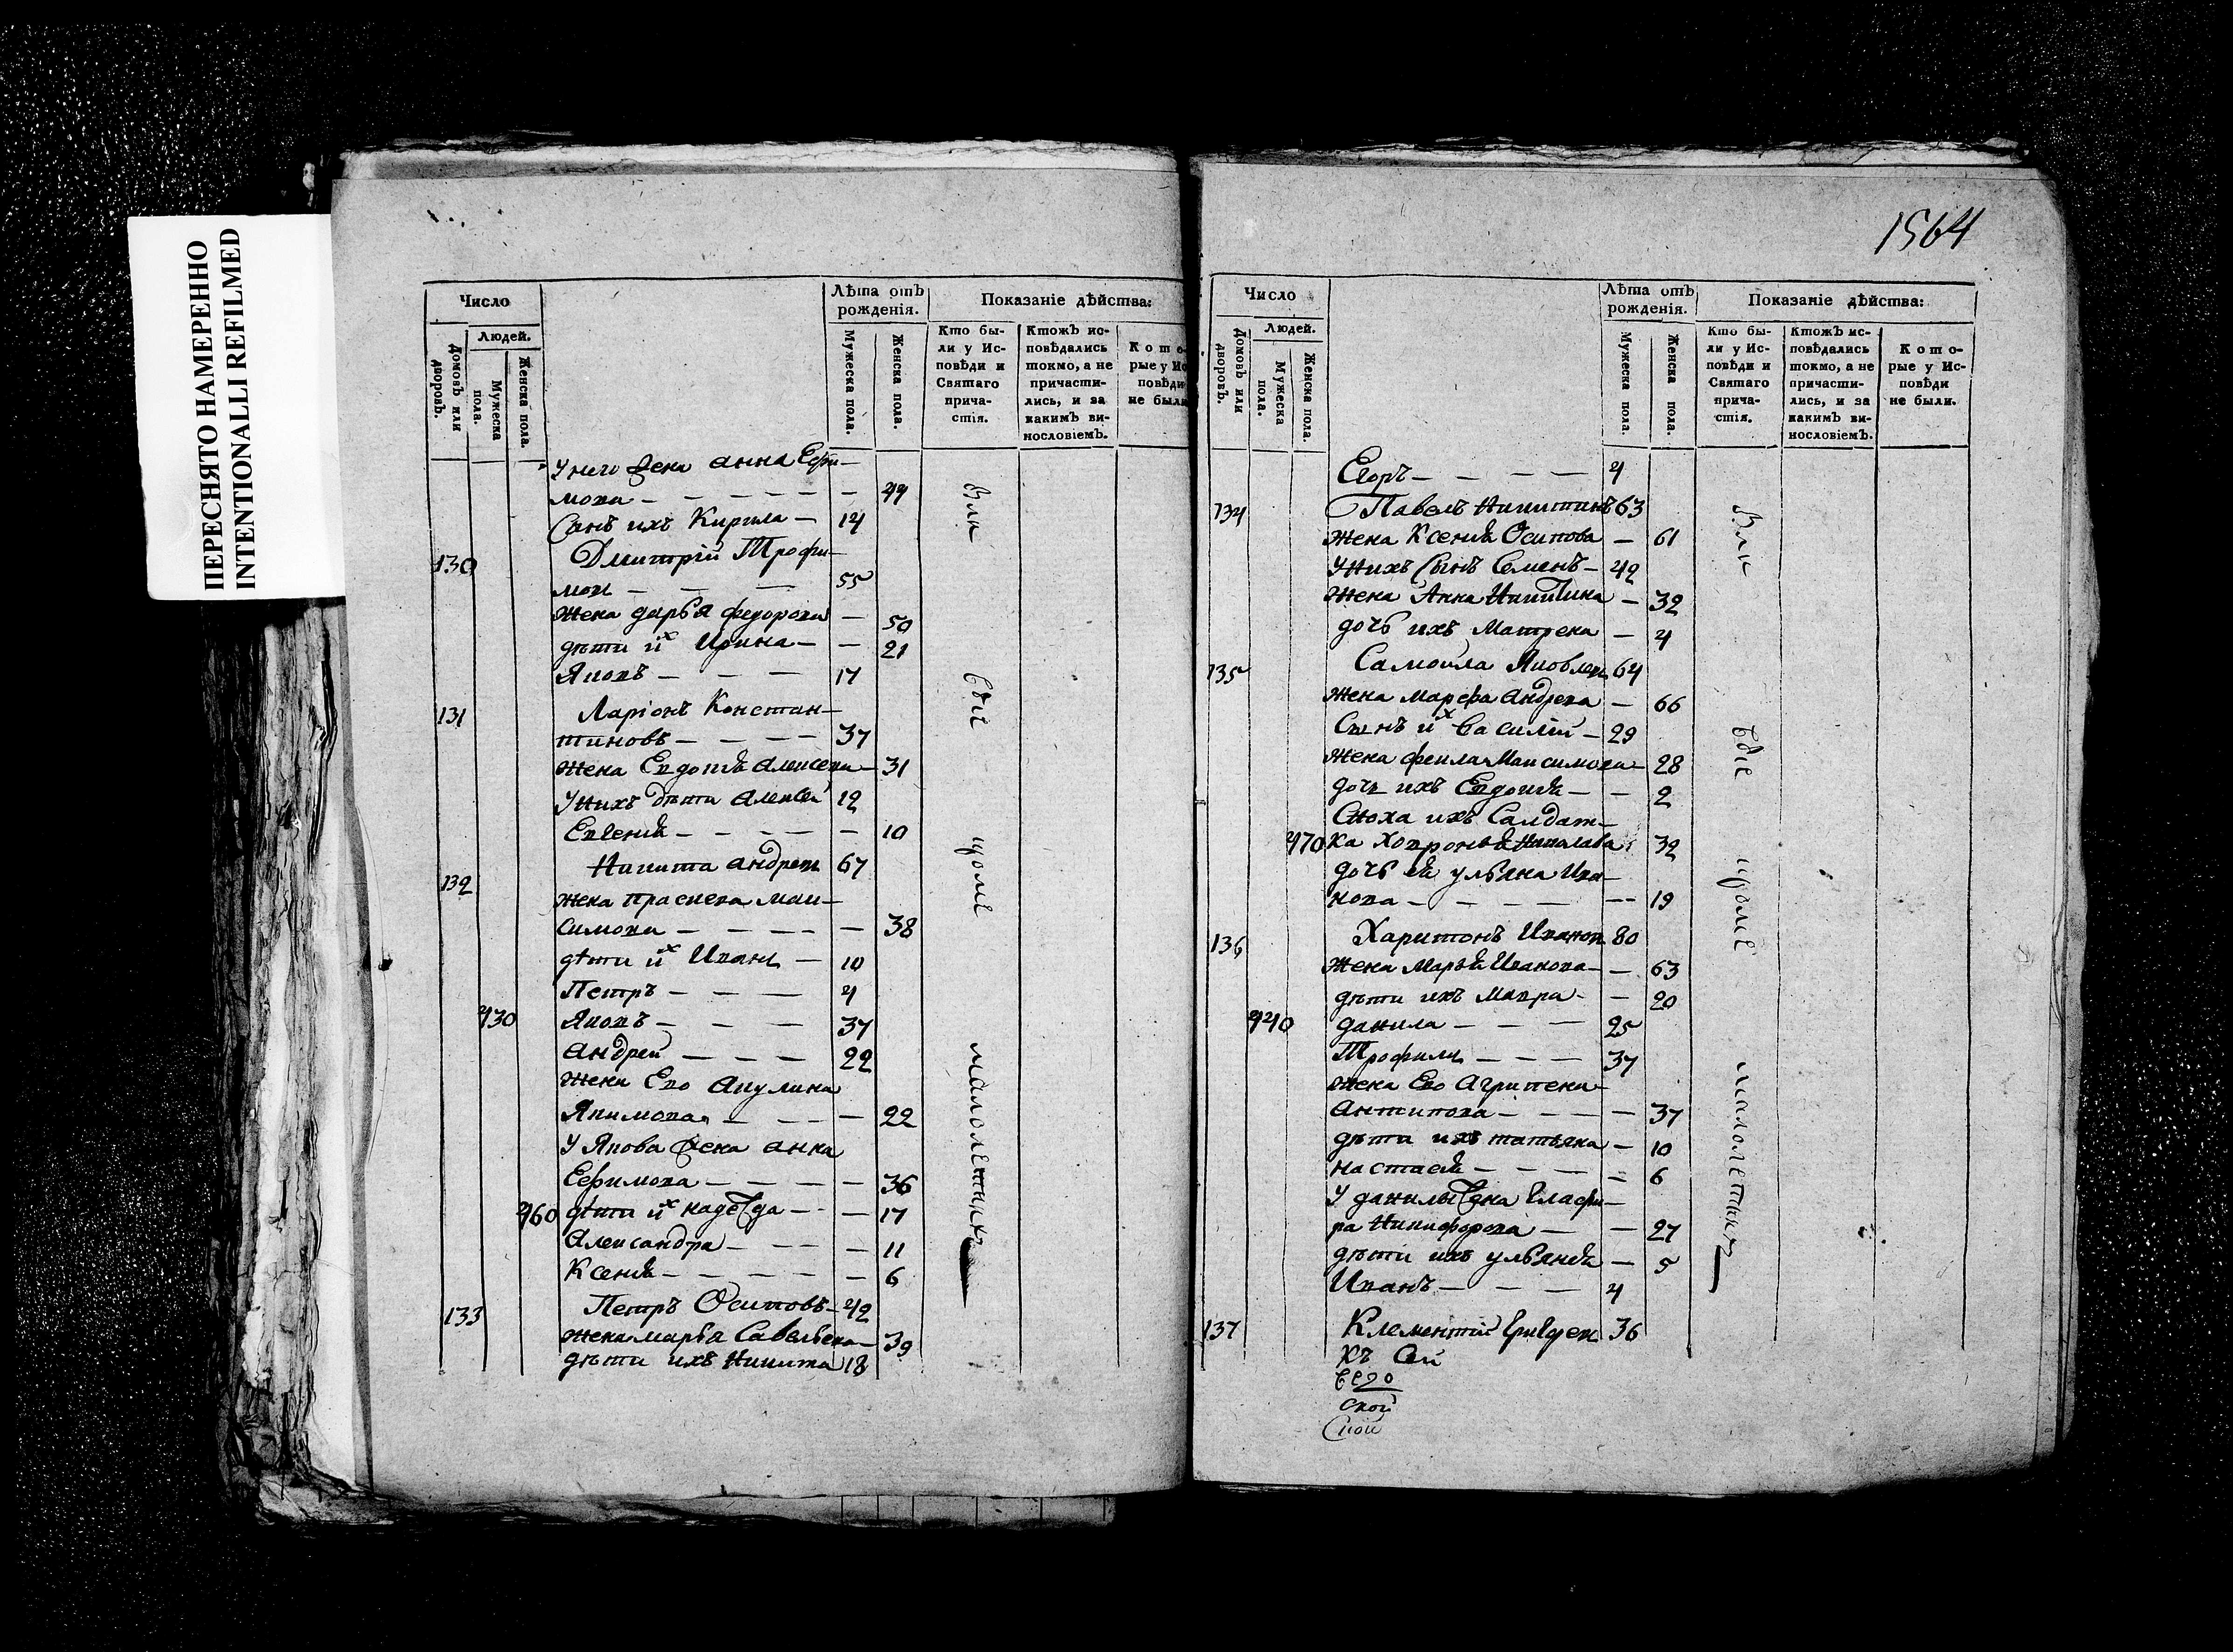 ПЕРЕСНЯТО НАМЕРЕННО
INTENTIONALLI REFILMED
Число
Людей.
Домовъ или дворовъ.
Мужеска пола.
Женска пола.
Лѣта отъ рожденія.
Мужеска пола.
Женска пола.
Показаніе дѣйства:
Кто были у Исповѣди и Святаго причастія.
Ктожъ исповѣдались токмо, а не причастились, и за какимъ винословіемъ.
Которые у Ис повѣди не были
У него жена анна Ефи—
мова — — — — — — 44
Сынъ ихъ Кирила — 14
130 Дмитрій Трофи—
мов — — — 55
жена дарья федорова — 50
дѣти их Ирина — — 21
Яковъ — — — 17
131 Ларіонъ Констан—
тиновъ — — — — 37
жена Евдокія алексева — 31
У нихъ дѣти алексей 12
Евгенія — — — — — 10
132 Никита андреев 67
жена праскева мак—
симова — — — — — 38
дѣти их Иванъ — 10
Петръ — — — 4
430 Яковъ — — — 37
андрей — — — 22
жена Его акулина
Якимова — — — — 22
У Якова жена анна
Ефимова — — — — — 36
460 дѣти их надежда — — — 17
александра — — — — 11
Ксенія — — — — — 6
133 Петръ Осиповъ — 42
жена марья Савельева — 39
дѣти ихъ Никита 18
Вли
Всіе
кромѣ
малолетныхъ
1564
Число
Людей.
Домовъ или дворовъ.
Мужеска пола.
Женска пола.
Лѣта отъ рожденія.
Мужеска пола.
Женска пола.
Показаніе дѣйства:
Кто были у Исповѣди и Святаго причастія.
Ктожъ исповѣдались токмо, а не причастились, и за какимъ винословіемъ.
Которые у Исповѣди не были.
Егоръ — — — — 4
134 Павелъ Никитинъ 63
жена Ксенія Осипова — 61
У нихъ Сынъ Семенъ — 42
жена Анна Никитина — 32
дочь ихъ Матрена — 4
135 Самойла Яковлев 64
жена марфа андрева — 66
Сынъ их василій — 29
жена фекла Максимова — 28
дочь ихъ Евдокія — — 2
Сноха ихъ Салдат—
470 ка Ховронья Николава 32
дочь ея ульяна Ива—
нова — — — — — 19
136 Харитонъ Иванов 80
жена Марья Иванова — — 63
дѣти ихъ Мавра — — 20
440 данила — — — 25
Трофимъ — — — 37
жена Его Агрипена—
антипова — — — — 37
дѣти ихъ татьяна — 10
настасія — — — — 6
У данилы жена глафи—
ра Никифорова — — 27
дѣти ихъ ульянея — 5
Иванъ — — — 4
137 Клементій 36
къ Сей
ской
Вли
всіе
кромѣ
малолетныхъ